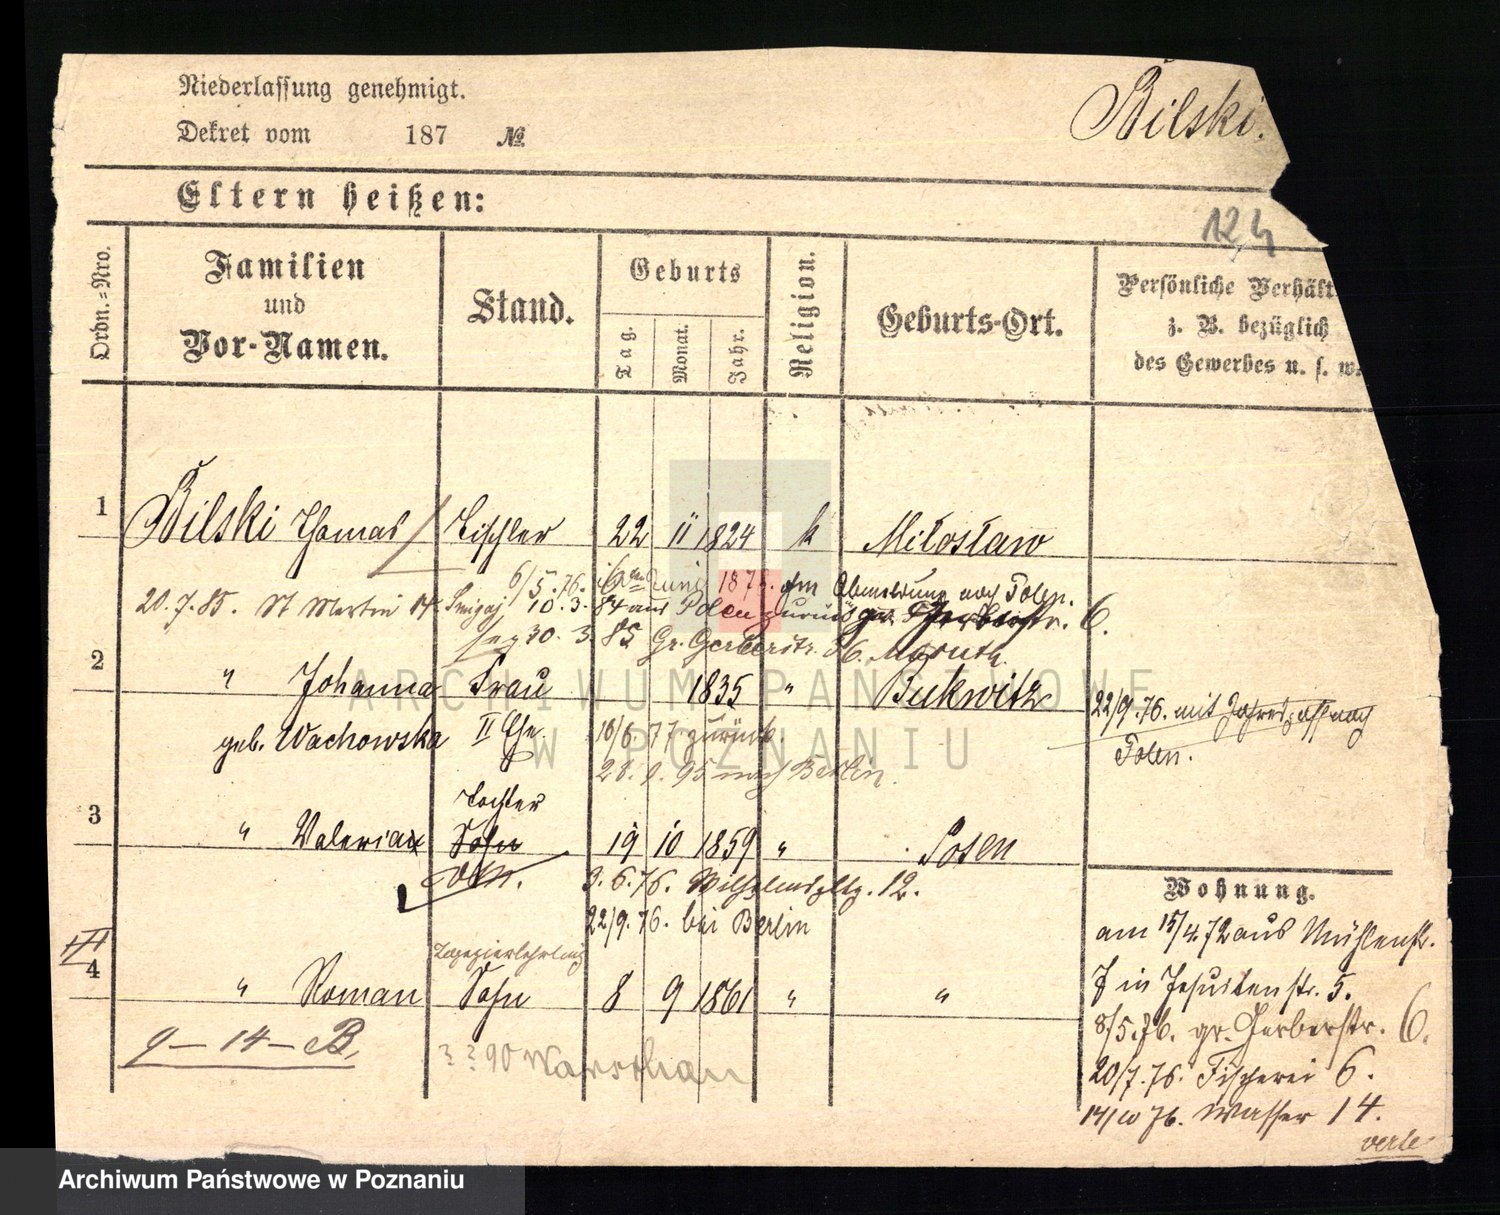 Niederlassung genehmigt.
Dekret vom 187 №
Bilski.
Eltern heißen:
124
Ordn.-Nro.
Familien
und
Vor-Namen.
Stand.
Geburts
Tag.
Monat.
Jahr.
Religion.
Geburts-Ort.
Persönliche Verhält
z. B. bezüglich
des Gewerbes u. s. w.
1 Bilski Thomas Tischler 22 11 1824 k Miłosław
6/5.76. Juni 187 Abmeldung nach Polen.
20.7.85. St Martin 10.3.84 aus Polen zurück gr. Gerberstr. 6.
30.3.85 Gr. Gerberstr. 36.
2 " Johanna Frau 1835 " Bukwitz
geb. Wachowska II Ehe 18/6 77 zurück.
22/9.76. mit nach
Polen.
28.9.95 nach Berlin.
Tochter
3 " Valeria Sohn 19 10 1859 " Posen
3.6.76. Wilhelmspltz. 12.
22/9.76. bei Berlin
Tapezierlehrling
4 " Roman Sohn 8 9 1861 " "
9-14-B.
? ? 90 Warschau
Wohnung.
am 15/4.72 aus Mühlenstr.
7 in Jesuitenstr. 5.
8/5.76. gr. Gerberstr. 6.
20/7.76. Fischerei 6.
14/10 76. Wasser 14.
verte
ARCHIWUM PAŃSTWOWE
W POZNANIU
Archiwum Państwowe w Poznaniu